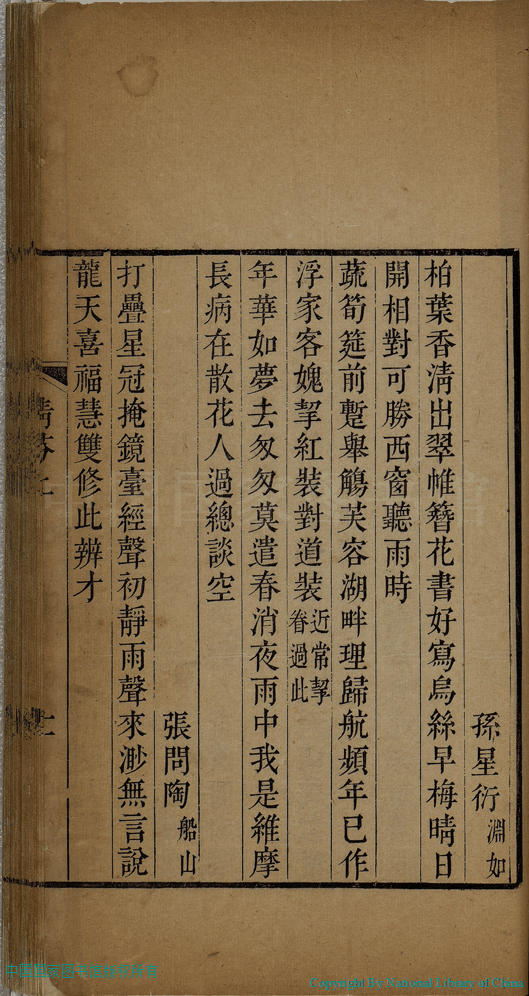 孫星衍淵如
柏葉香淸出翠帷簪花書好寫烏絲早梅晴日
開相對可勝西窗聽雨時
蔬筍筵前蹔舉觴芙容湖畔理歸航頻年已作
浮家客媿挈紅裝對道裝近常挈眷過此
年華如夢去匆匆莫遣春消夜雨中我是維摩
長病在散花人過總談空
張問陶船山
打疊星冠掩鏡臺經聲初靜雨聲來渺無言說
龍天喜福慧雙修此辨才
Copyright By National Library of China